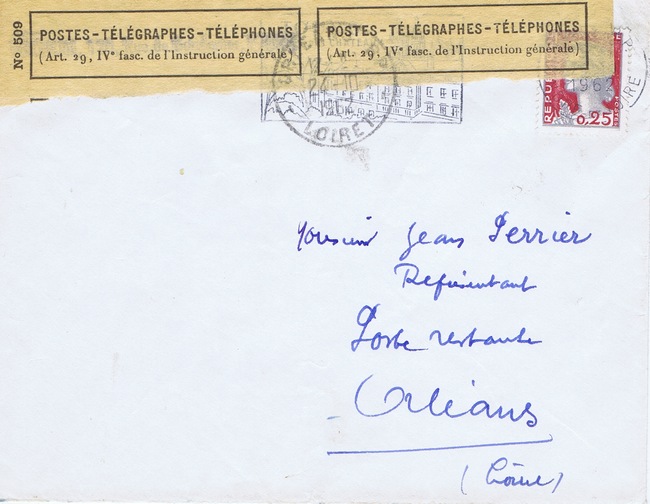 No 509
POSTES-TÉLÉGRAPHES-TÉLÉPHONES
(Art. 29, IVe fasc. de l'Instruction générale)
POSTES-TÉLÉGRAPHES-TÉLÉPHONES
(Art. 29, IVe fasc. de l'Instruction générale)
24-10
1962
LOIRET
1962
REPUB
0,25
Monsieur Jean Perrier
Représentant
Poste restante
Orléans
(Loiret)